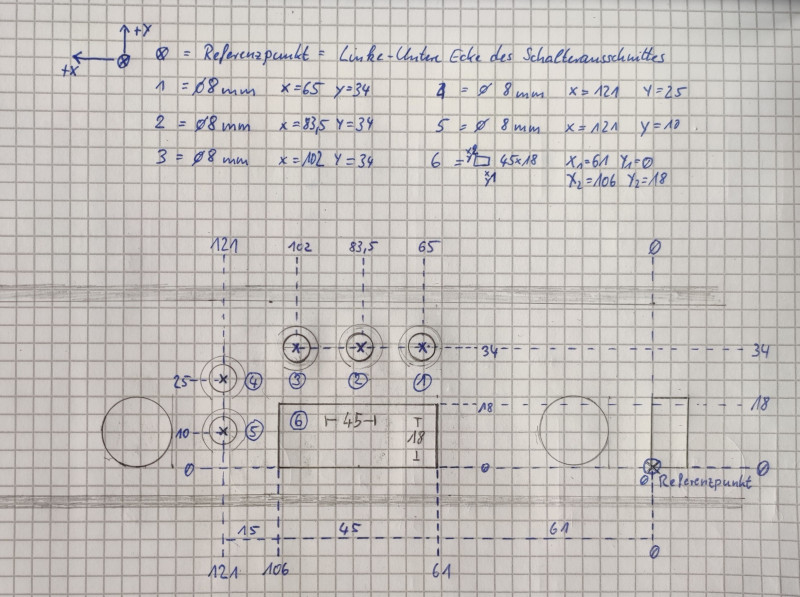 +Y
+X
⊗ = Referenzpunkt = Linke-Untere Ecke des Schalterausschnittes
1 = Ø8mm x=65 y=34
4 = Ø 8mm x=121 Y=25
2 = Ø8mm x=83,5 Y=34
5 = Ø 8mm x=121 y=10
3 = Ø8mm x=102 Y=34
6 = x2 45x18 X1=61 Y1=0
x1 X2=106 Y2=18
121 102 83,5 65 0
34 34
25 4 3 2 1
18 18
6 45 18
10 5
0 0 0
0 Referenzpunkt
15 45 61
0
121 106 61